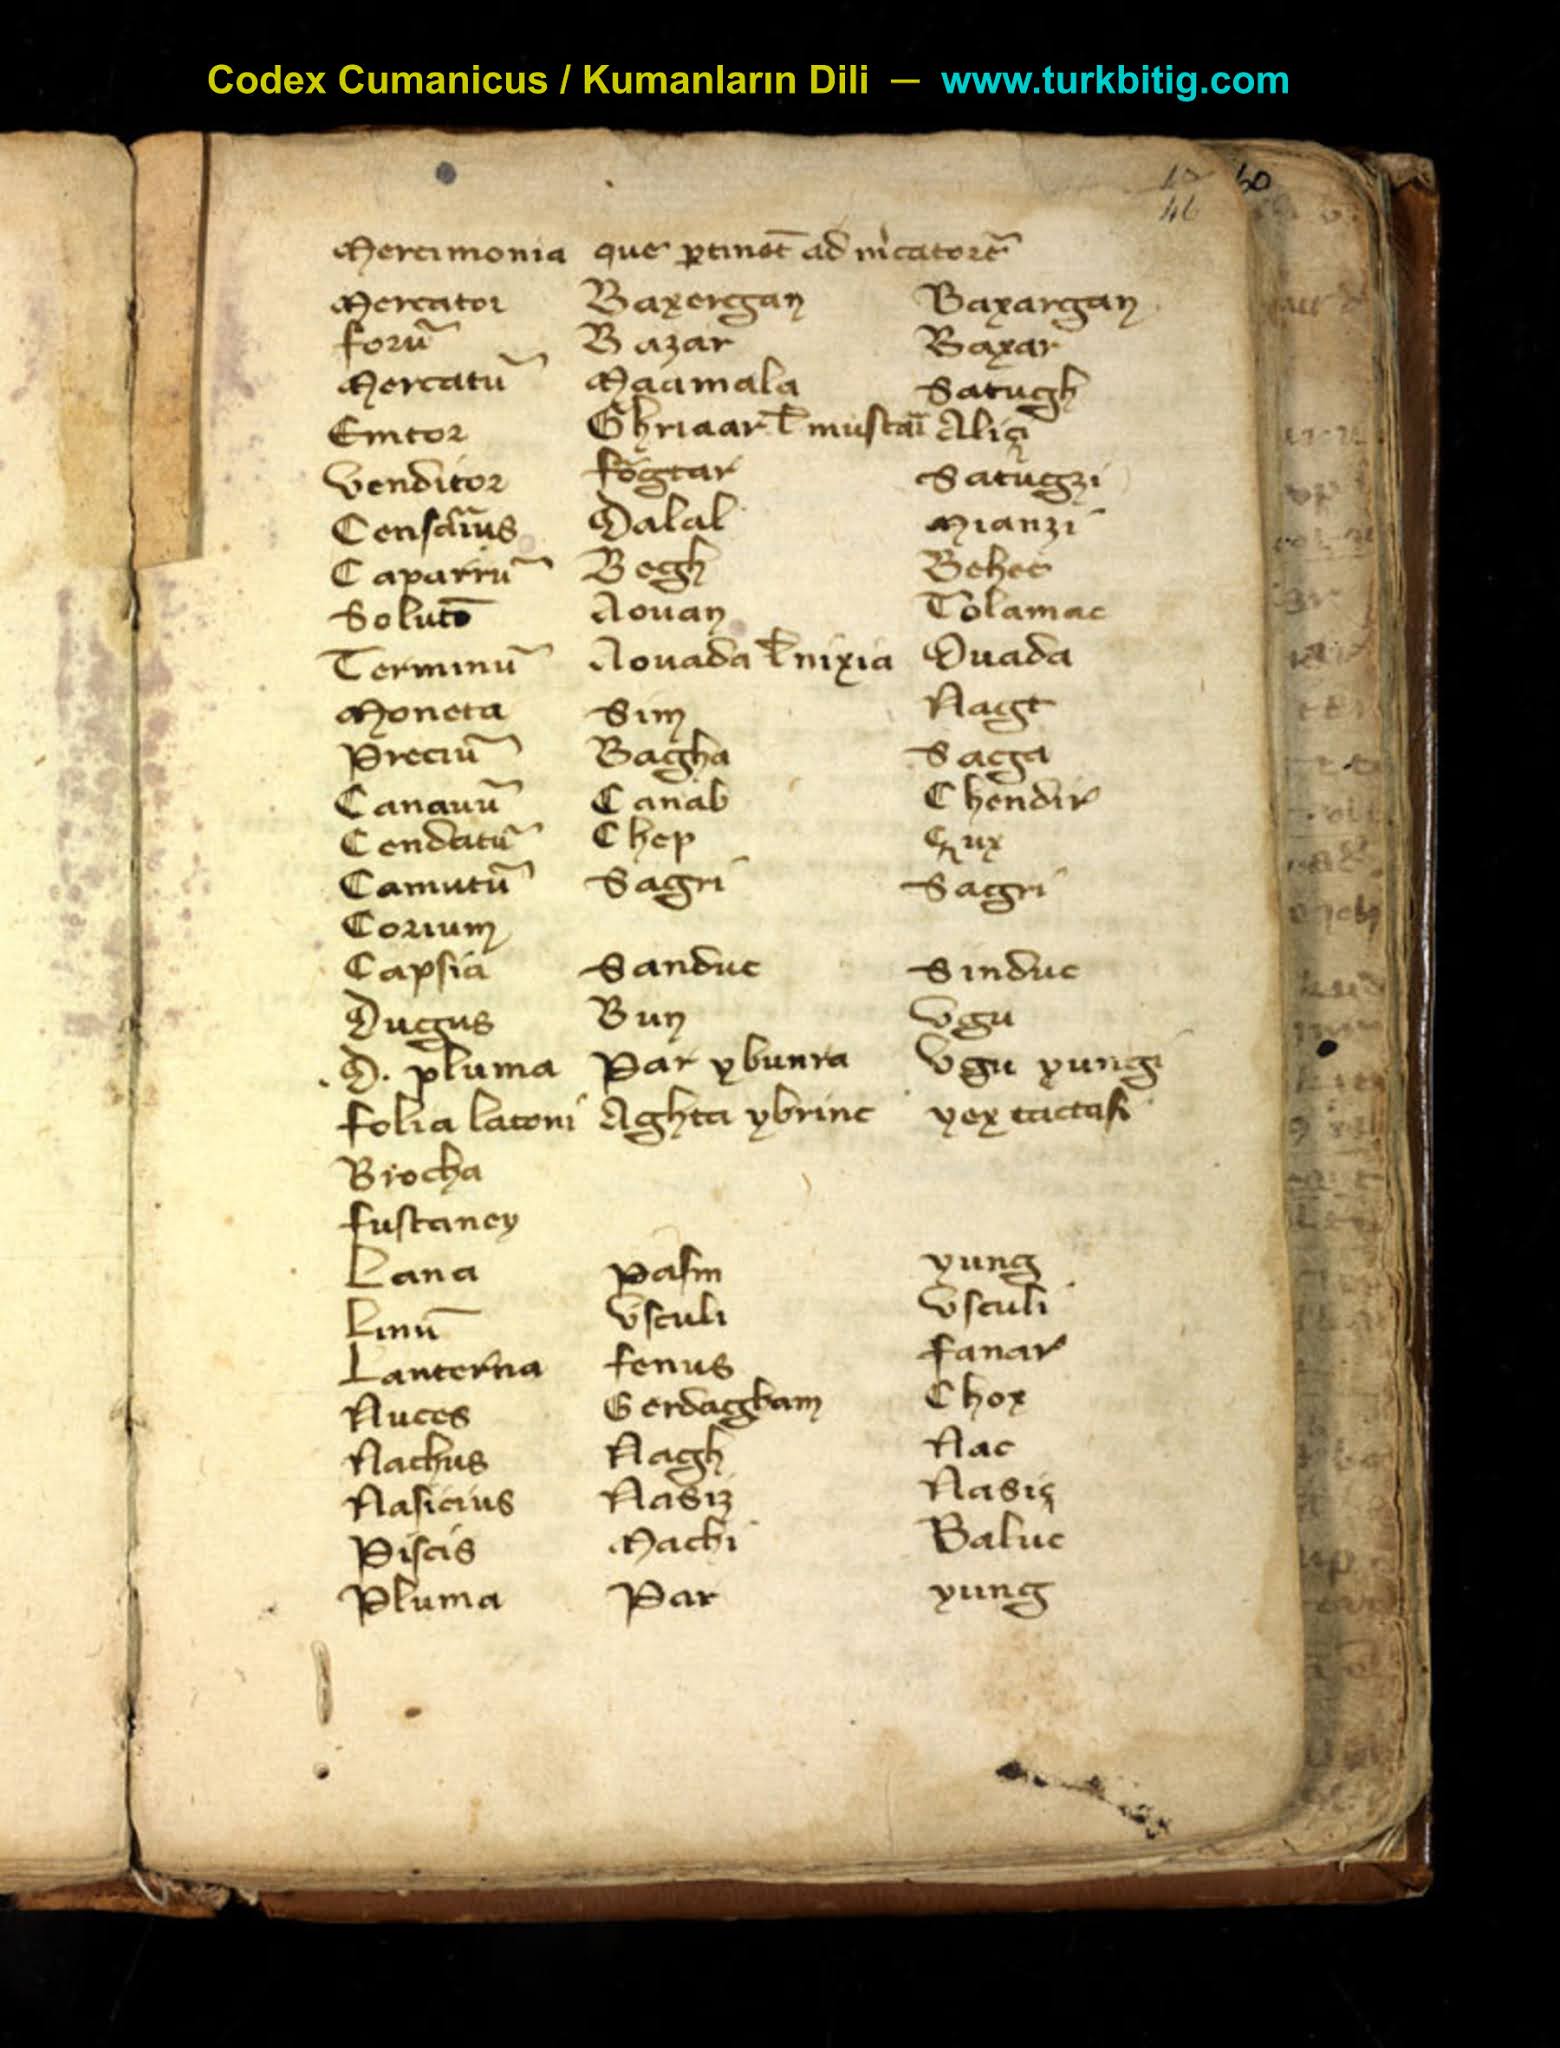 Codex Cumanicus / Kumanların Dili — www.turkbitig.com
17 60
46
Mercimonia que ꝑtinēt ad mͥcatorē
Mercator Baxergan Baxargan
forū Bazar Baxar
Mercatū Maamala Satugh
Emtor Ghriaar ł mustaī Aliçi
Venditor fogtar Satugzi
Censāius Dalal Mianzi
Caparrū Begh Behet
Solutō Aouan Tolamac
Terminū Aouada ł nixia Ouada
Moneta Sim Nagt
Preciū Bagha Saga
Canauū Canab Chendir
Cendatū Chep Çux
Camutū Sagri Sagri
Corium
Capsia Sanduc Sinduc
Ducgus Bun Vgu
D. pluma Par ybunra Vgu yungi
folia latoni Aghta ybrinc yex tactasi
Brocha
fustaney
Lana pasm yung
Linū Vsculi Vsculi
Lanterna fenus fanar
Nuces Gerdacgham Chox
Nachus Nagh Nac
Nasicius Nasiz Nasiç
Piscis Machi Baluc
Pluma Par yung